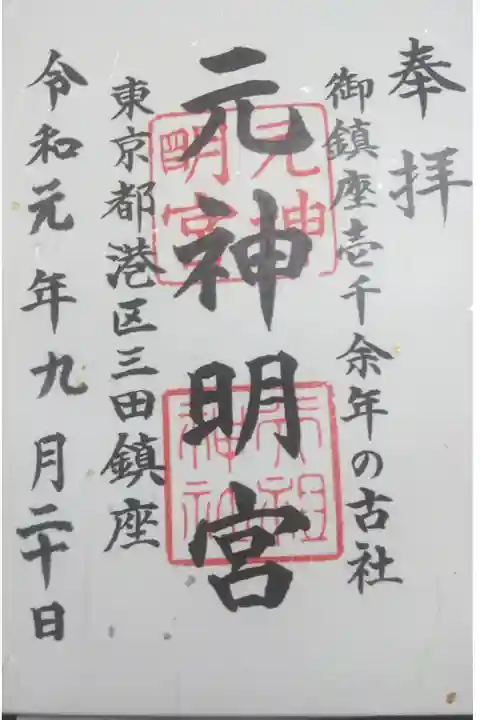 奉拝
御鎮座壱千余年の古社
元神明宮
東京都港区三田鎮座
令和元年九月二十日
元神明宮
天祖神社